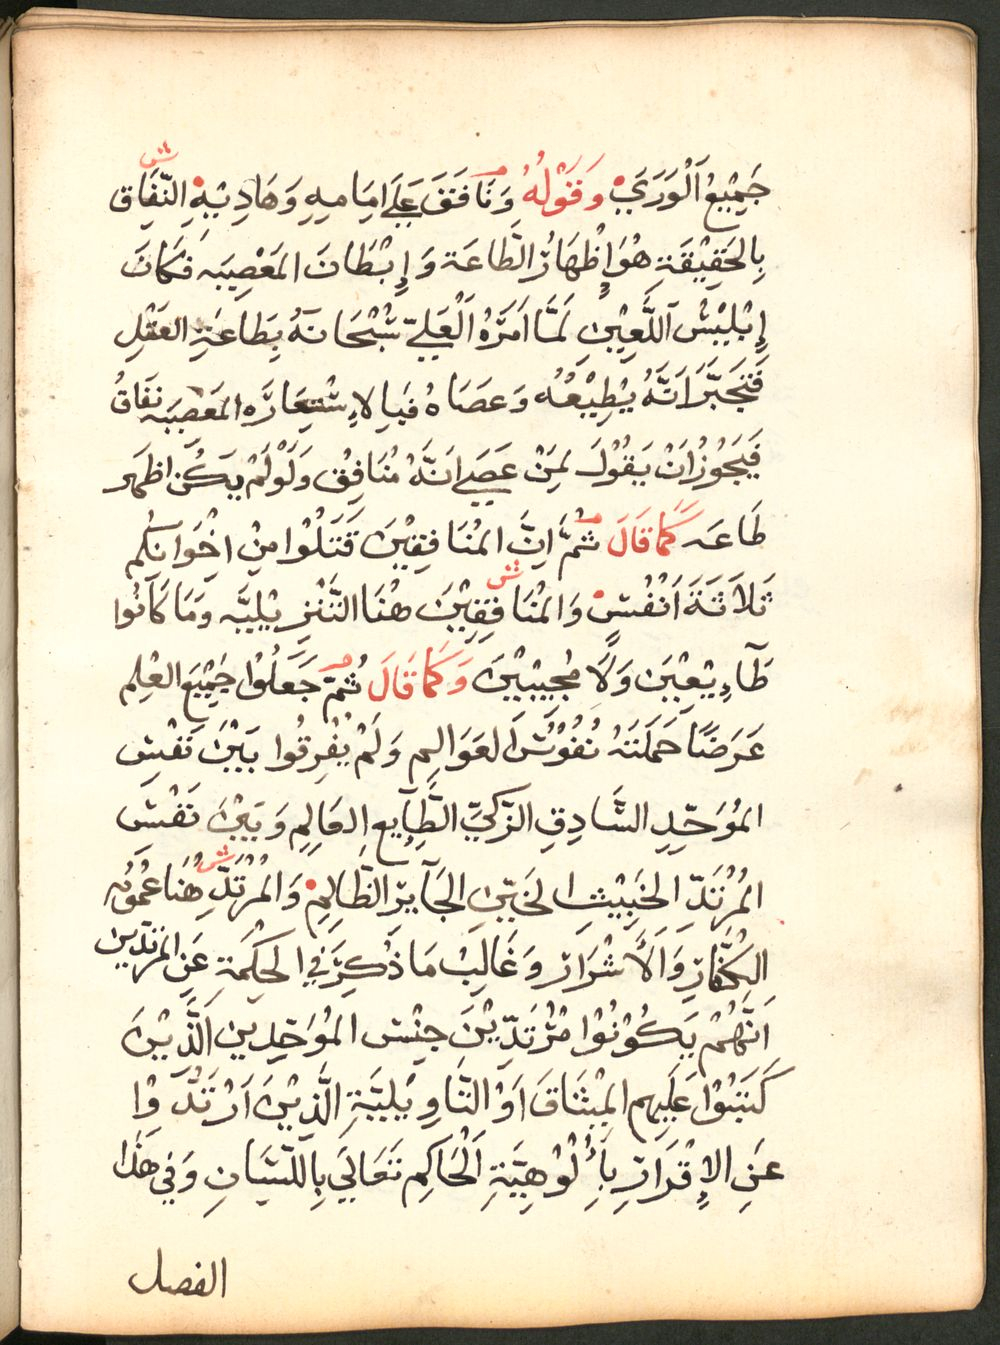 جَمِيْعُ اَلْوَرَيْ وَقَوْلُهُ وَنَافَقَ عَلَيَ اِمَامِهِ وَهَادِيْهِ ش النِّفَاق
بِالحَقِيْقَةِ هُوَ إِظْهَارُ الطَّاعَة وَإِبْطَانَ المَعْصِيَه فَكَانَ
إِبْلِيْسْ اَللَّعِيْن لَمَّا اَمَرَهُ اَلْعَلِيّ سُبْحَانَهُ بِطَاعَةِ العَقْلِ
فَتَجَبَّرَ اَنَّهُ يُطِيْعُهُ وَعَصَاهُ فَبِالاِسْتِعَارَه المَعْصِيَه نِفَاقُ
فَيَجُوْزُ اَنْ يَقُوْلَ لِمَنْ عَصَيَ اِنَّهُ مُنَافِقْ وَلَوْ لَمْ يَكُنْ اظهَر
طَاعَه كَمَا قَالَ ثُمَّ اِنَّ المُنَافِقِيْنَ قَتَلُوْا مِنْ اخْوَانِكُم
ثَلَاثَةَ اَنْفُسْ ش وَالمُنَافِقِيْنَ هُنَا التَّنْزِيْلِيَّه وَمَا كَانُوا
طَآءِيْعِيْنَ وَلَا مُجِيْبِيْنَ وَكَمَا قَالَ ثُمَّ جَعَلُوْا جَمِيْعَ العِلْم
عَرَضًا حَمَلَتَهُ نُفُوْسُ العَوَالِم وَلَمْ يُفَرِقُوا بَيْنَ نَفْسِ
المُوَحِّدِ الصَّادِقِ الزَّكِيِّ الطَّآيِعِ العَالِمِ وَبَيْنَ نَفْسَ
المُرْتَدِّ الخَبِيْثِ الخَيِّنِ الجَآيِرِ الظَّالِمْ ش وَالمُرْتَدِّ هُنَا عُمُوْمُه
الكُفَّارِ وَالاَشْرَار وَغَالِبْ مَا ذُكِرَ فِي الحِكْمَة عَنِ المُرْتَدِّين
اَنَّهُمْ يَكُوْنُوْا مُرْتَدِّيْنَ جِنْس المُوَحِّدِين الَّذِيْنَ
كَتَبُوْا عَلَيهِم المِيْثَاقَ اَوْ التَّاوِيْلِيَّةِ الَّذِيْنَ اَرْتَدُّوْا
عَنِ الاِقْرَارِ بِأُلُوْهِيَّةِ اَلْحَاكِم تَعَالَي بِاللِّسَانِ وَفِي هَذَا
الفصل